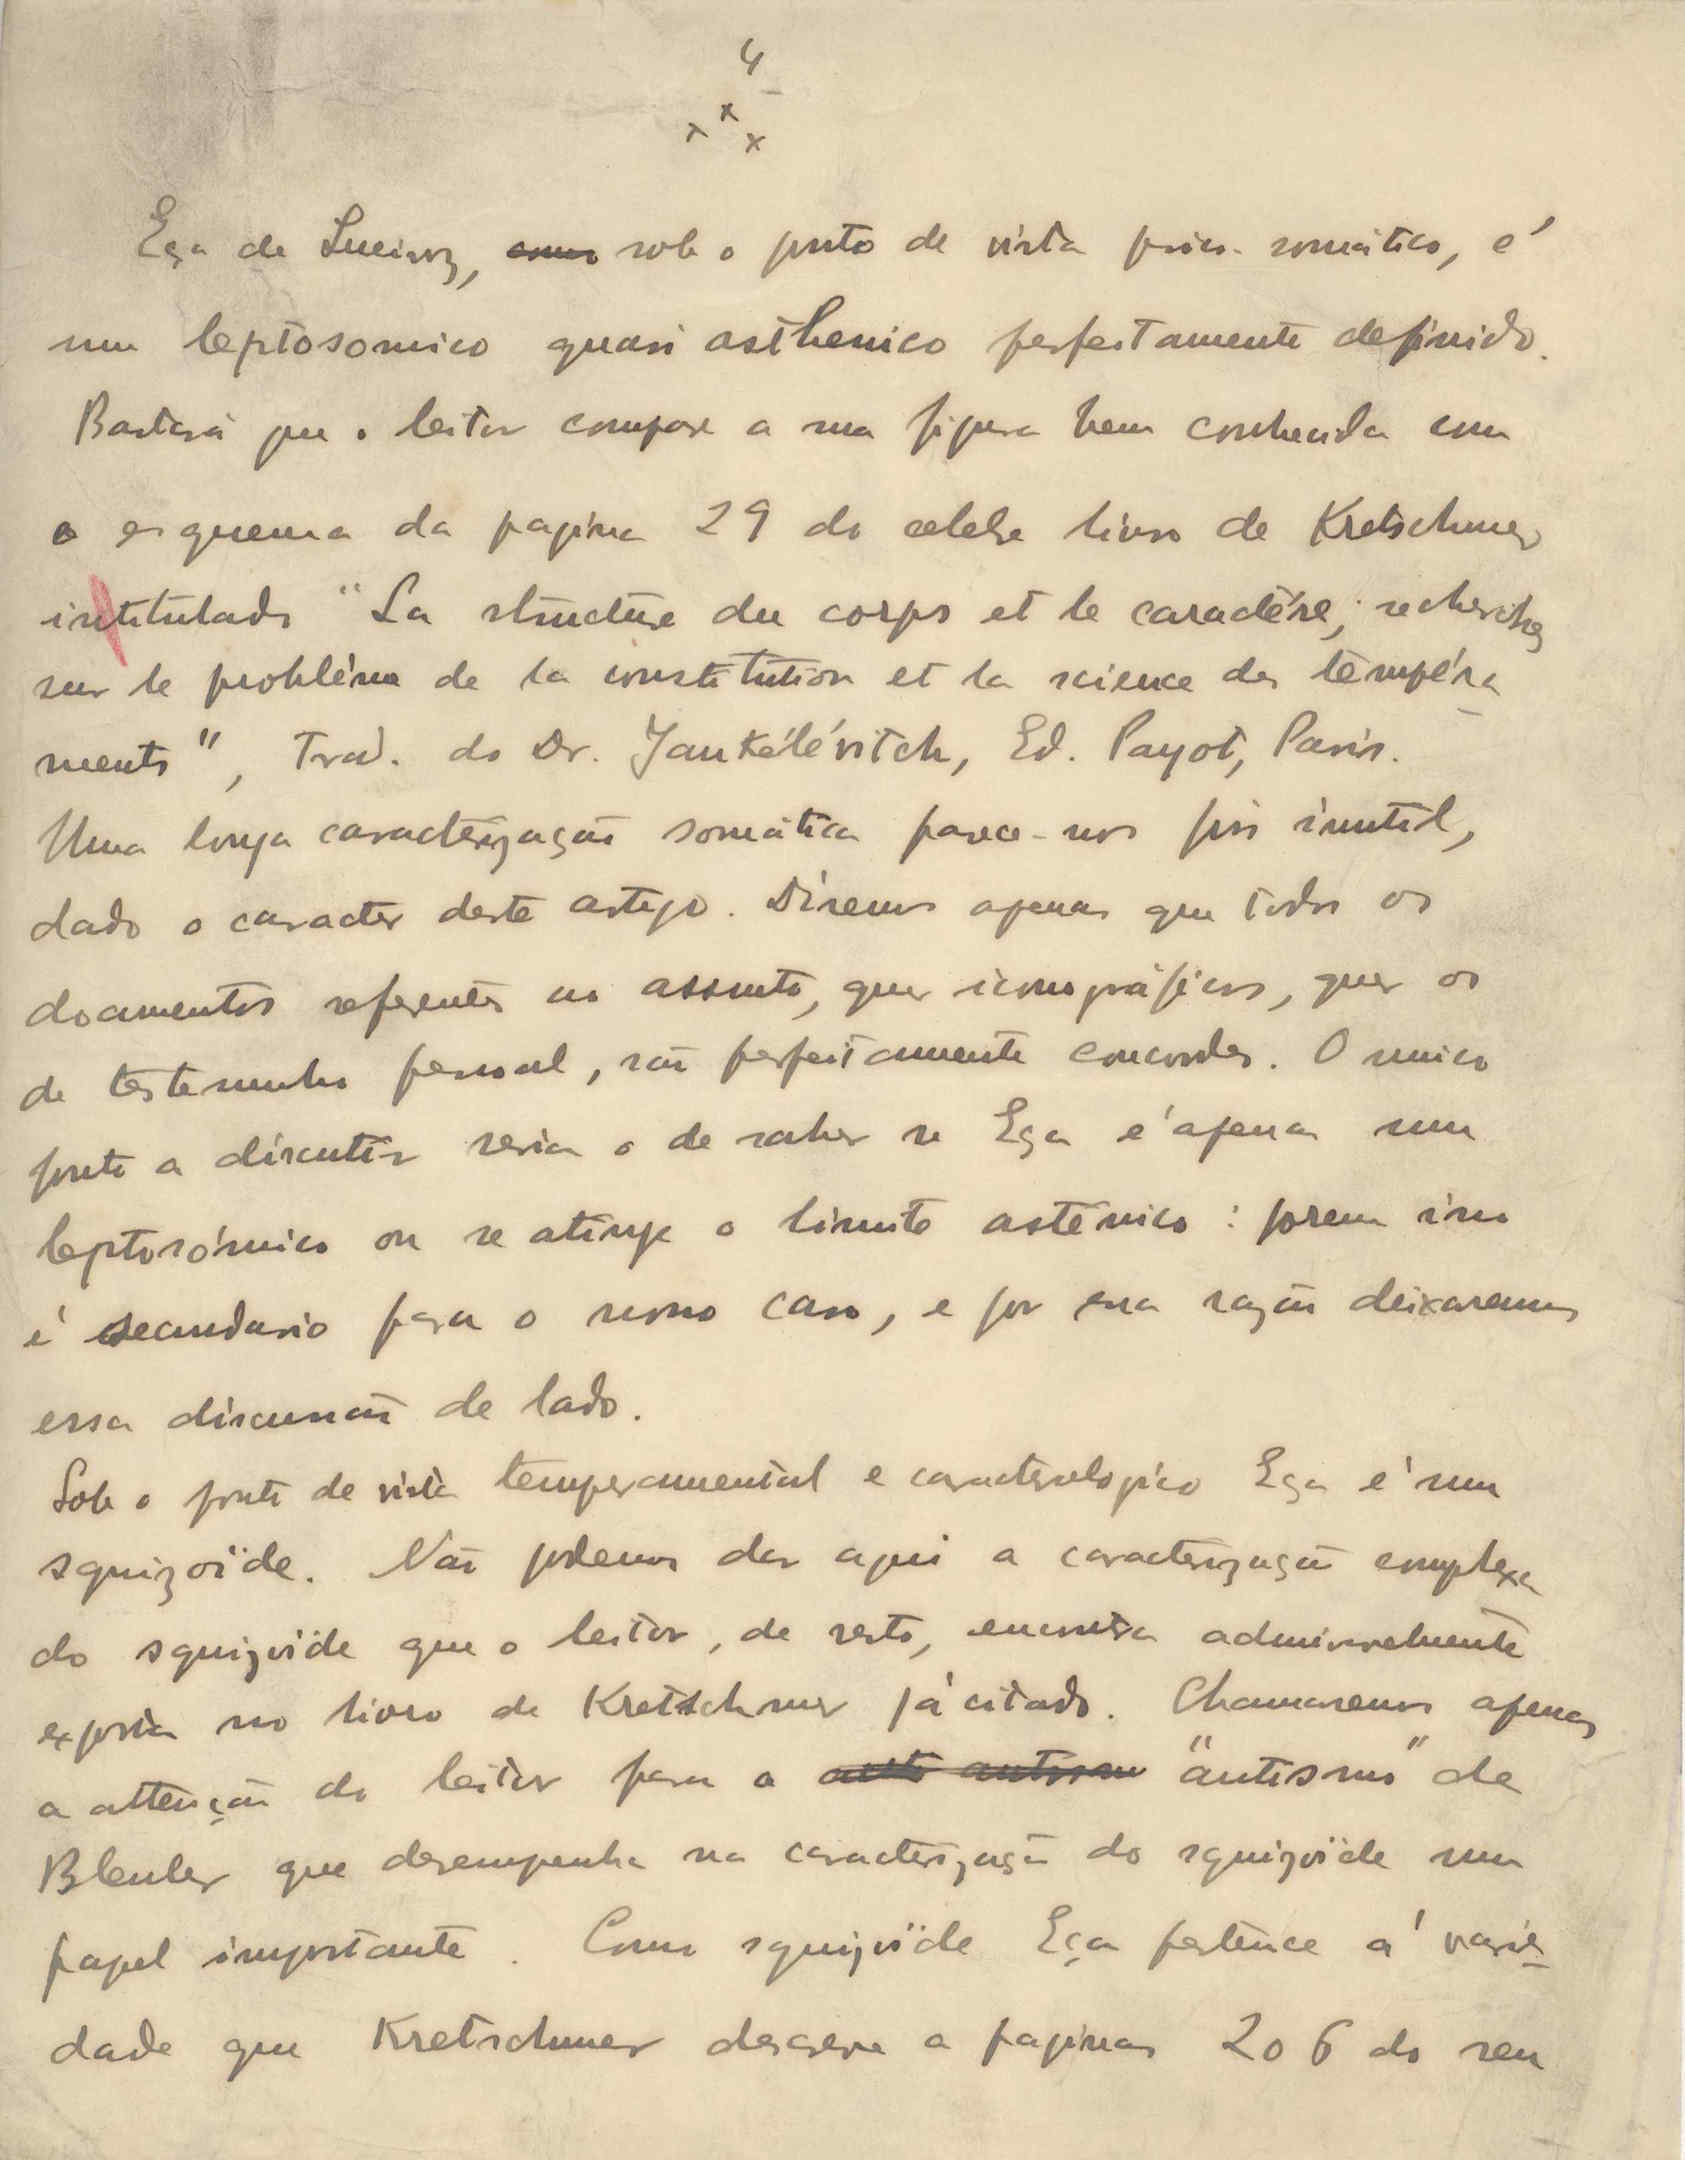 4
x x x
Eça de Queiroz, como sob o ponto de vista psico-somático, é
um leptosomico quasi asthenico perfeitamente definido.
Bastará que o leitor compare a sua figura bem conhecida com
o esquema da pagina 29 do celebre livro de Kretschmer
intitulado "La structure du corps et le caractére; recherches
sur le probléme de la constitution et la science des tempéra-
ments", Trad. do Dr. Jankélévitch, Ed. Payot, Paris.
Uma longa caracterização somática parece-nos pois inutil,
dado o caracter deste artigo. Diremos apenas que todos os
documentos referentes ao assunto, quer iconográficos, quer os
de testemunho pessoal, são perfeitamente concordes. O unico
ponto a discutir seria o de saber se Eça é apenas um
leptosómico ou se atinge o limite asténico: porem isso
é secundario para o nosso caso, e por essa razão deixaremos
essa discussão de lado.
Sob o ponto de vista temperamental e caracterologico Eça é um
squizoïde. Não podemos dar aqui a caracterização complexa
do squizoïde que o leitor, de resto, encontra admiravelmente
exposta no livro de Kretschmer já citado. Chamaremos apenas
a attenção do leitor para o "autismo" de
Bleuler que desempenha na caracterização do squizoïde um
papel importante. Como squizoïde Eça pertence á varie-
dade que Kretschmer descreve a paginas 206 do seu